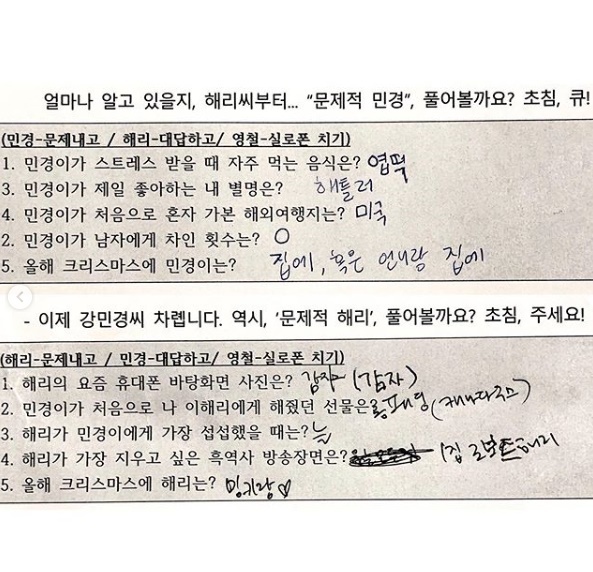 얼마나 알고 있을지, 해리씨부터... “문제적 민경”, 풀어볼까요? 초침, 큐!
(민경-문제내고 / 해리-대답하고/ 영철-실로폰 치기)
1. 민경이가 스트레스 받을 때 자주 먹는 음식은? 엽떡
3. 민경이가 제일 좋아하는 내 별명은? 해틀러
4. 민경이가 처음으로 혼자 가본 해외여행지는? 미국
2. 민경이가 남자에게 차인 횟수는? 0
5. 올해 크리스마스에 민경이는? 집에, 혹은 언니랑 집에
- 이제 강민경씨 차렙니다. 역시, ‘문제적 해리’, 풀어볼까요? 초침, 주세요!
(해리-문제내고 / 민경-대답하고/ 영철-실로폰 치기)
1. 해리의 요즘 휴대폰 바탕화면 사진은? 감자 (감자)
2. 민경이 처음으로 나 이해리에게 해줬던 선물은 롱패딩 (캐나다구스)
3. 해리가 민경이에게 가장 섭섭했을 때는? 늘
4. 해리가 가장 지우고 싶은 흑역사 방송장면은? 1집 로보트해리
5. 올해 크리스마스에 해리는? 밍키랑♡